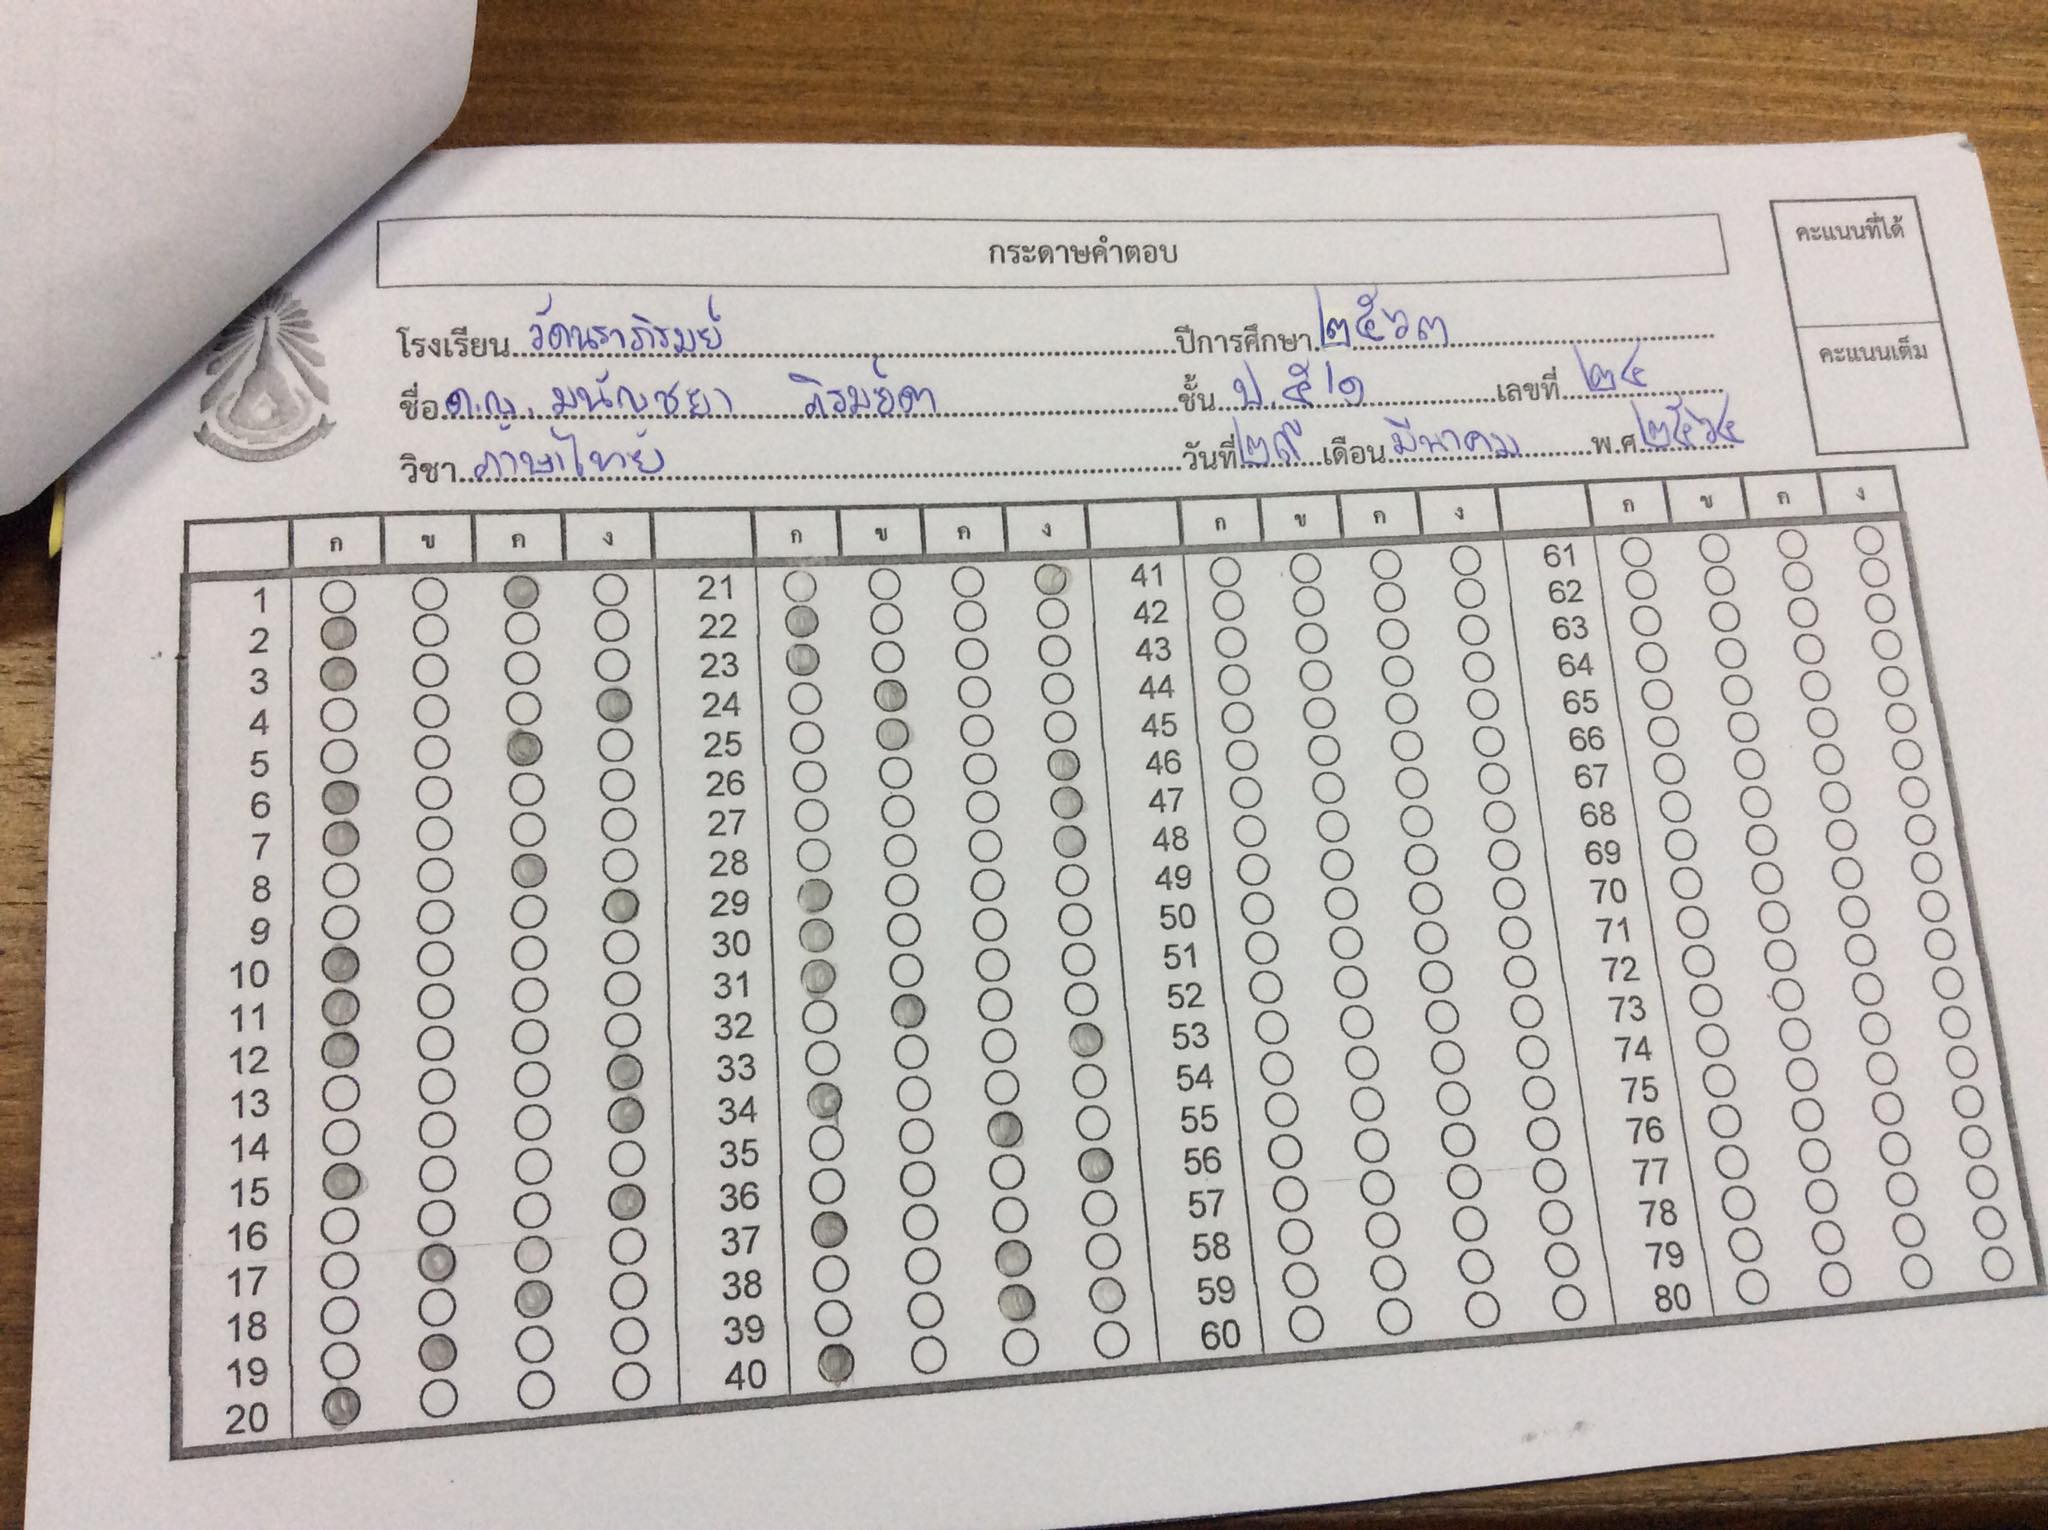 กระดาษคำตอบ
คะแนนที่ได้
คะแนนเต็ม
โรงเรียน วัดนราภิรมย์ ปีการศึกษา ๒๕๖๓
ชื่อ ด.ญ. มนัญชยา ภิรมย์ดา ชั้น ป.๕/๑ เลขที่ ๒๔
วิชา ภาษาไทย วันที่ ๒๙ เดือน มีนาคม พ.ศ ๒๕๖๔
ก ข ค ง ก ข ค ง ก ข ค ง ก ข ค ง
1 21 41 61
2 22 42 62
3 23 43 63
4 24 44 64
5 25 45 65
6 26 46 66
7 27 47 67
8 28 48 68
9 29 49 69
10 30 50 70
11 31 51 71
12 32 52 72
13 33 53 73
14 34 54 74
15 35 55 75
16 36 56 76
17 37 57 77
18 38 58 78
19 39 59 79
20 40 60 80